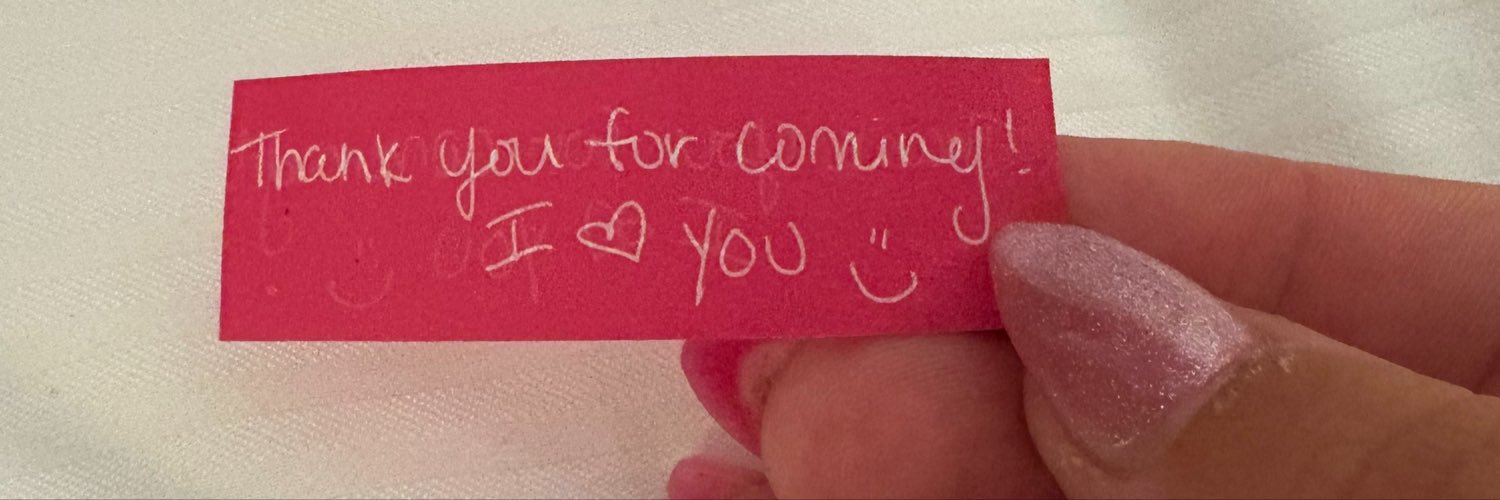 Thank you for coming!
I ♡ YOU :)